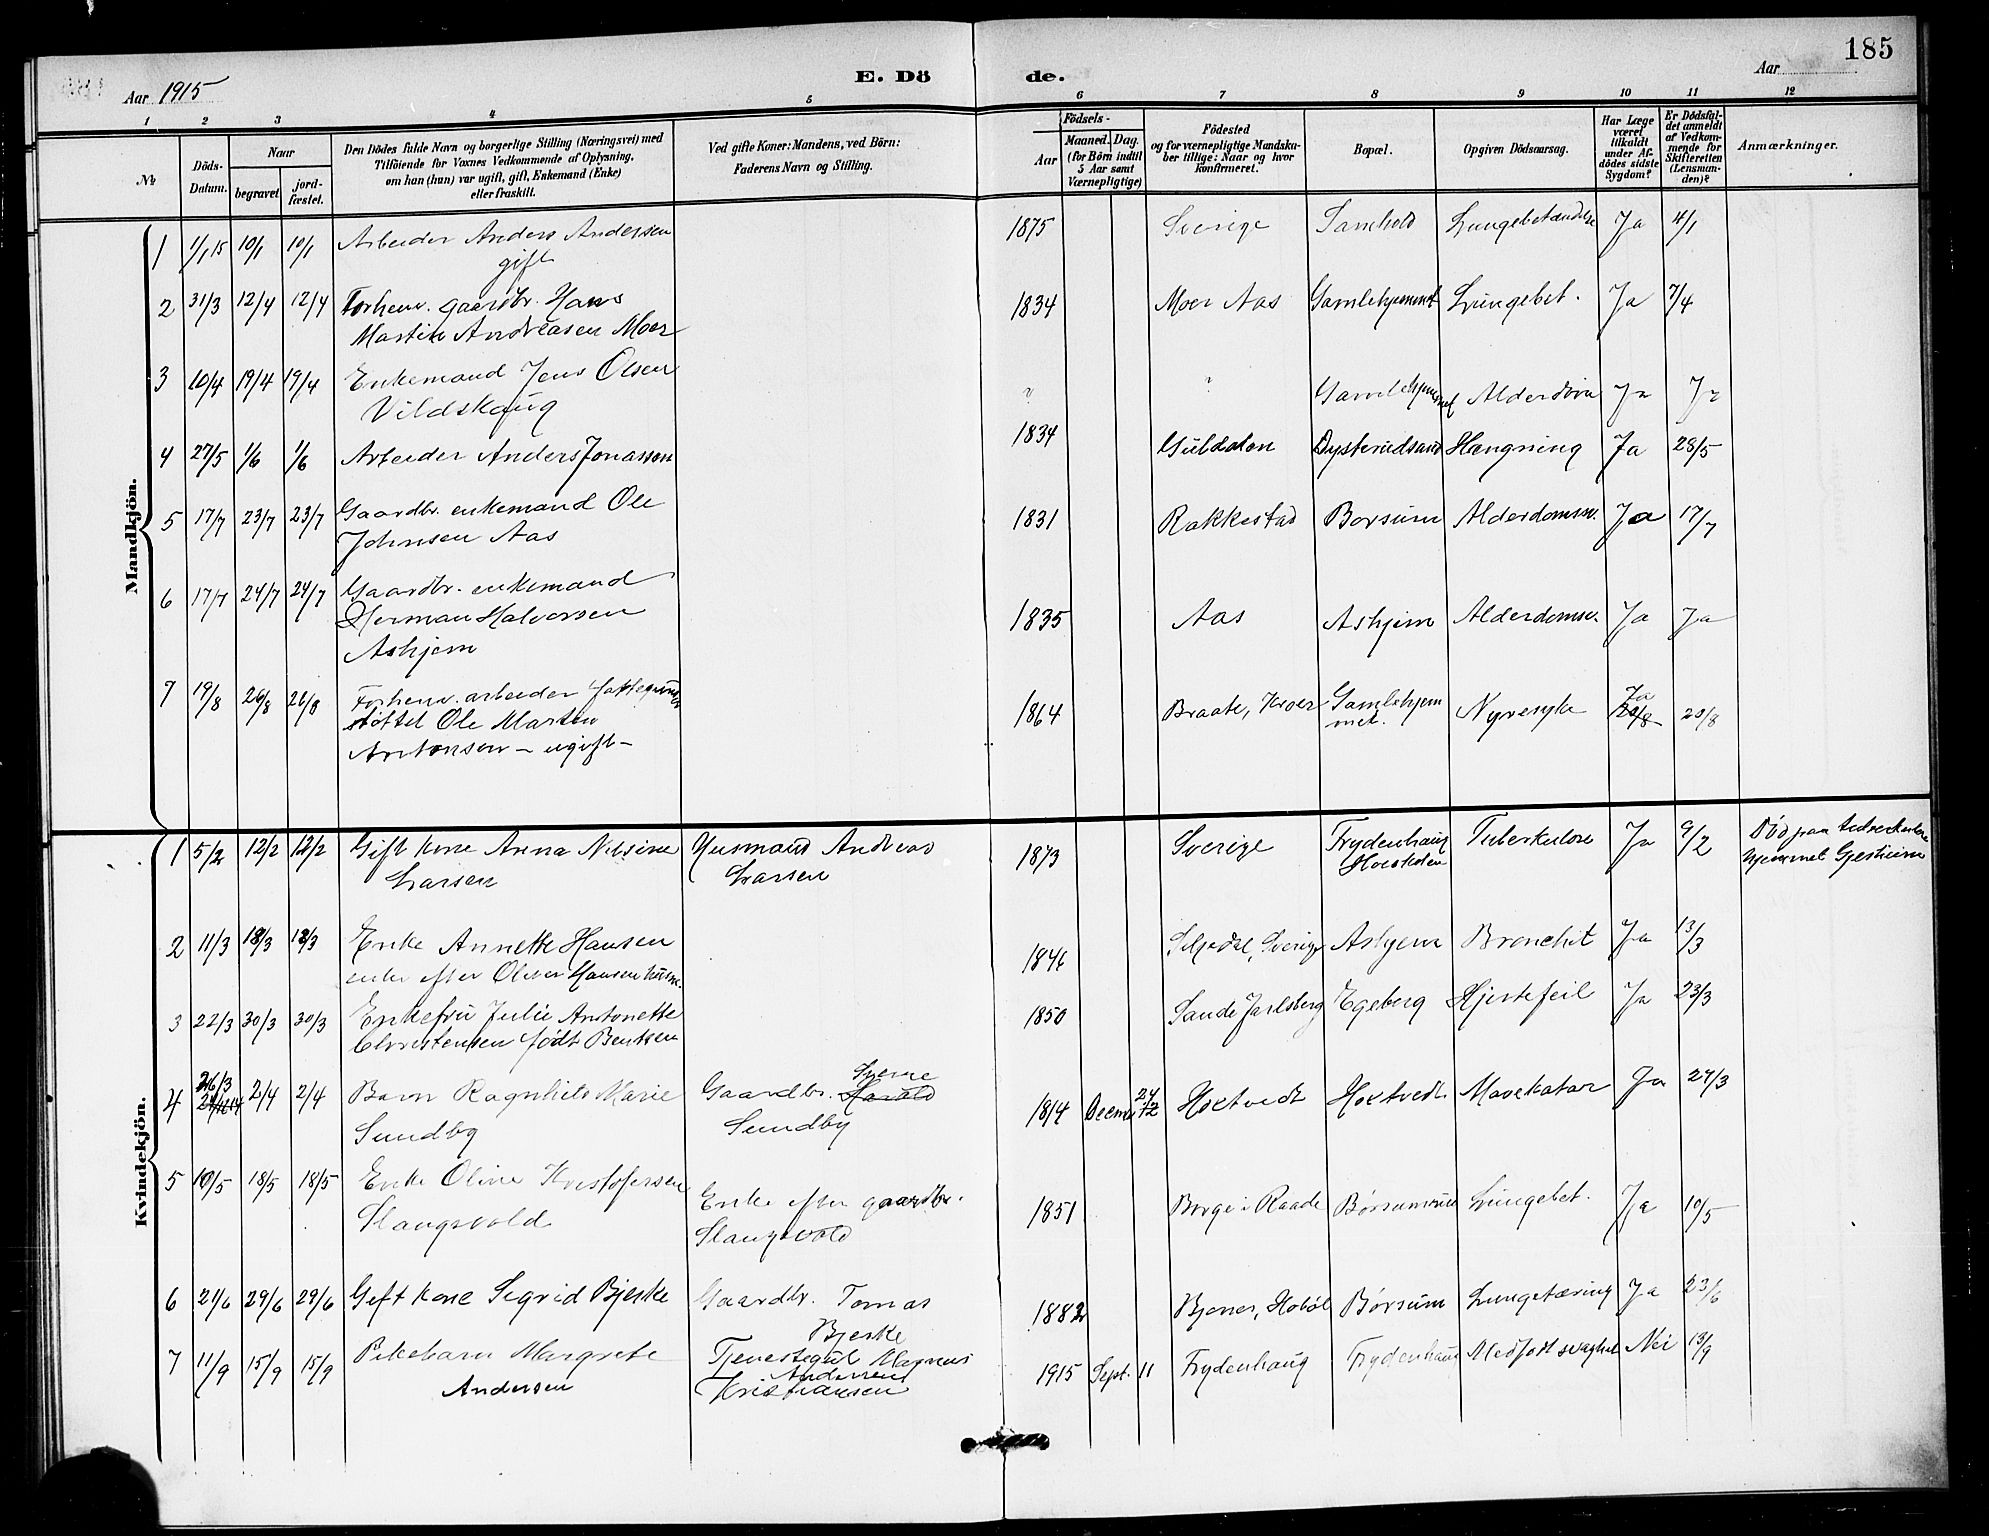 185
Aar 1915
E. Dö de.
Aar
1 2 3 4 5 6 7 8 9 10 11 12
№
Döds-Datum.
Naar
begravet
jord-fæstet.
Den Dödes fulde Navn og borgerlige Stilling (Næringsvei) med
Tilföiende for Voxnes Vedkommende af Oplysning,
om han (hun) var ugift, gift, Enkemand (Enke)
eller fraskilt.
Ved gifte Koner: Mandens, ved Börn:
Faderens Navn og Stilling.
Födsels-
Aar
Maaned. Dag.
(for Börn indtil
5 Aar samt
Værnepligtige)
Födested
og for værnepligtige Mandska-
ber tillige: Naar og hvor
konfirmeret.
Bopæl.
Opgiven Dödsaarsag.
Har Læge
været
tilkaldt
under Af-
dödes sidste
Sygdom?
Er Dödsfal-
det anmeldt
af Vedkom-
mende for
Skifteretten
(Lensman-
den)?
Anmærkninger.
Mandkjön.
1 1/1 15 10/1 10/1 Arbeider Anders Andersen 1875 Sverige Samhold Lungebetændelse Ja 4/1
gift
2 31/3 12/4 12/4 Forhenv. gaardbr. Hans 1834 Moer Aas Gamlehjemmet Lungebet. Ja 7/4
Martin Andreasen Moer
3 10/4 19/4 19/4 Enkemand Jens Olsen " " Gamlehjemmet Alderdom Ja Ja
Vildskaug
4 27/5 1/6 1/6 Arbeider Anders Jonassen 1834 Guldalen Hængning Ja 28/5
5 17/7 23/7 23/7 Gaardbr. enkemand Ole 1831 Rakkestad Borsum Alderdomssv. Ja 17/7
Johnsen Aas
6 17/7 24/7 24/7 Gaardbr. enkemand
Herman Halvorsen 1835 Aas Askjem Alderdomssv. Ja Ja
Askjem
7 19/8 26/8 26/8 Forhenv. arbeider fattigunder 1864 Braate, Kroer Gamlehjem Nyresyke Ja 20/8 20/8
støttet Ole Martin met.
Antonsen – ugift –
Kvindekjön.
1 5/2 12/2 12/2 Gift kone Anna Nilsine Husmand Andreas 1873 Sverige Frydenhaug Tuberkulose Ja 9/2 Død paa tuberkulose
Larsen Larsen hjemmet Gjestheim
2 11/3 18/3 18/3 Enke Annette Hansen 1846 Sverige Askjem Bronchit Ja 13/3
enke efter Oliver Hansen husm.
3 22/3 30/3 30/3 Enkefru Julie Antonette 1850 Sande Jarlsberg Egeberg Hjertefeil Ja 23/3
Christensen født Bentsen
4 26/3 2/4 2/4 Barn Ragnhild Marie Gaardbr. Harald Sverre 1814 Decem 24/12 Hoxtvedt Hoxtvedt Mavekatar Ja 27/3
Sundby Sundby
5 10/5 18/5 18/5 Enke Oline Kristofersen Enke efter gaardbr. 1851 Borge i Raade Lungebet. Ja 10/5
Slangsvold Slangsvold
6 21/6 29/6 29/6 Gift kone Sigrid Bjerke Gaardbr. Tomas 1882 Bjerner, Hobøl Børsum Lungetæring Ja 23/6
Bjerke
7 11/9 15/9 15/9 Pikebarn Margrete Tjenestegut Magnus 1915 Sept. 11 Frydenhaug Frydenhaug Medfødt svaghet Nei 13/9
Andersen Andersen
Kristiansen